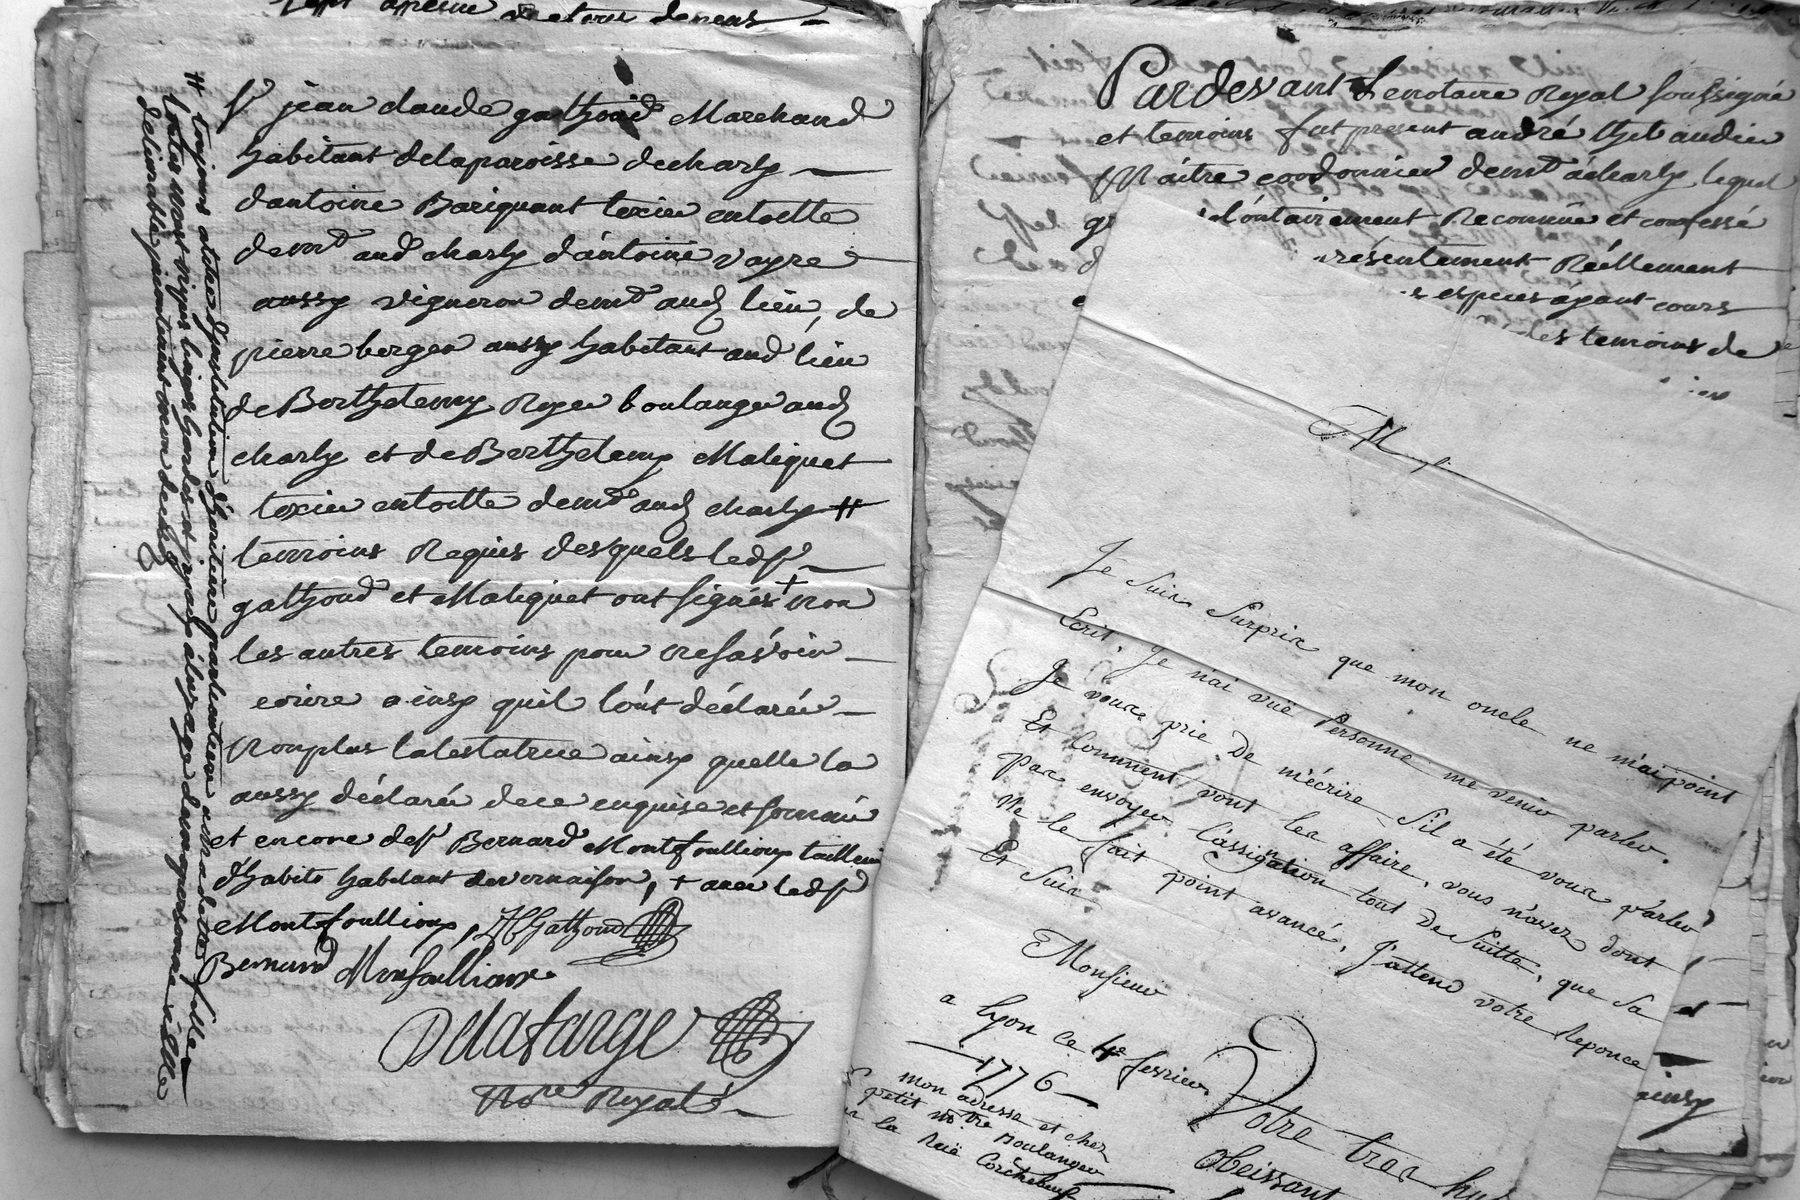 sept apresme victoris demeus
Sr jean claude gathoud Marchand
habitant delaparoisse decharly
dantoine Bariquant texier entoille
demt aud charly d'antoine vayre
aussy vigneron demt aud lieu, de
pierre berger aussy habitant aud lieu
de Berthelemy Roger boulanger aud
charly et de Berthelemy Maliquet
texier entoille demt aud charly #
temoins Requis desquels ledsr
gathoud et Maliquet ont signés + non
les autres temoins pour ne sasvoir
ecrire ainsy quil l'ont déclarée
Nonplus latestatrice ainsy quelle la
aussy déclarée dece enquise et sommée
et encore desr Bernard Montfoullioup tailleur
d'habits habitant de vernaison, + avec ledsr
Montfoullioup, JCGathoud
Bernard Monfoullioux
Delafarge
Nore Royal
# toujours atitre d'jnstitution d'heritiere particuliere asmadette fille
toutes mont nipes linges hardes et joyaux àlusage demapersonne x elle
delivrable jncontinent mon decez
Pardevant Lenotaire Royal soussigné
et temoins fut present andré thibaudier
Maitre cordonnier demt àcharly lequel
volontairement Reconnue et confessé
résentement Réellement
espèces áyant cours
des temoins de
M
Je suis Surpris que mon oncle ne m'ai point
Ecrit. Je n'ai vuë Personne me venir parler.
Je vous prie De m'écrire S'il a été vous parler
Et Comment vont les affaire, vous n'avez dont
pas envoyer l'assignation tout De suitte, que sa
Ne le fait point avancé, J'attend votre Reponce
Et suis
Monsieur
a lyon ce 4e fevrier
1776
Votre tres hu
obeissant
mon adresse et chez
petit mtre Boulanger
la Ruë Corchebeuf
ainsy